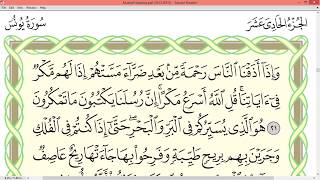 الجُزْءُ الحَادِي عَشَرَ
سُورَةُ يُونُسَ
وَإِذَآ أَذَقْنَا ٱلنَّاسَ رَحْمَةً مِّنۢ بَعْدِ ضَرَّآءَ مَسَّتْهُمْ إِذَا لَهُم مَّكْرٌ
فِىٓ ءَايَاتِنَا ۚ قُلِ ٱللَّهُ أَسْرَعُ مَكْرًا ۚ إِنَّ رُسُلَنَا يَكْتُبُونَ مَا تَمْكُرُونَ
٢١ هُوَ ٱلَّذِى يُسَيِّرُكُمْ فِى ٱلْبَرِّ وَٱلْبَحْرِ ۖ حَتَّىٰٓ إِذَا كُنتُمْ فِى ٱلْفُلْكِ
وَجَرَيْنَ بِهِم بِرِيحٍ طَيِّبَةٍ وَفَرِحُوا۟ بِهَا جَآءَتْهَا رِيحٌ عَاصِفٌ